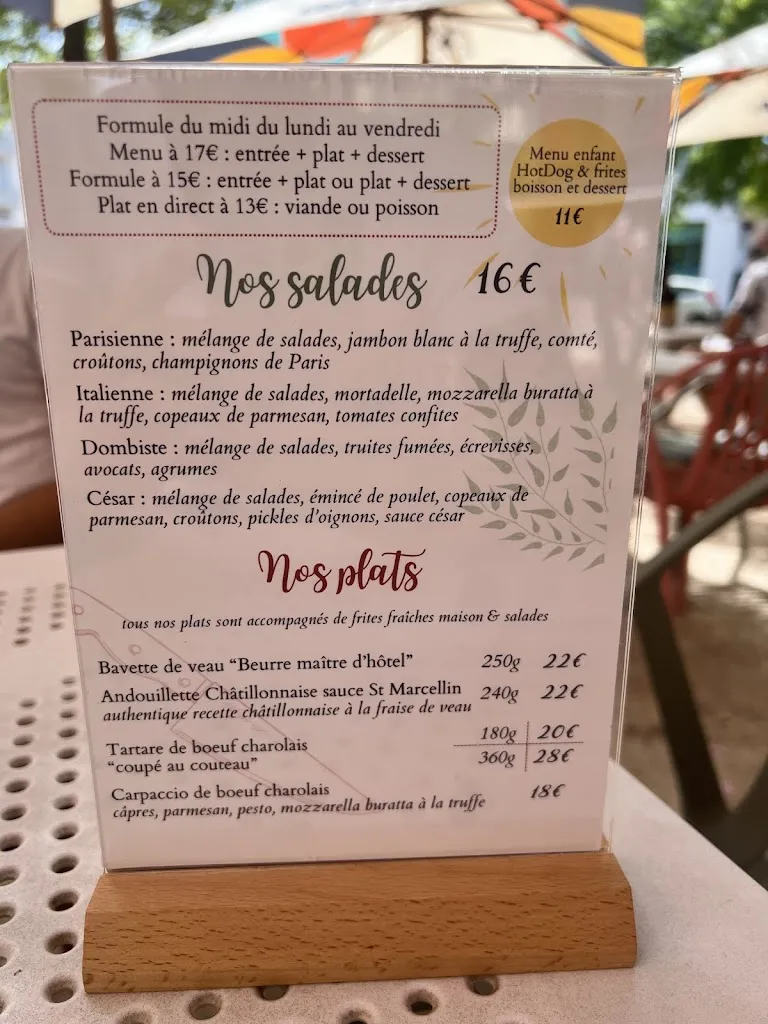 Formule du midi du lundi au vendredi
Menu à 17€ : entrée + plat + dessert
Formule à 15€ : entrée + plat ou plat + dessert
Plat en direct à 13€ : viande ou poisson
Menu enfant
HotDog & frites
boisson et dessert
11€
Nos salades 16€
Parisienne : mélange de salades, jambon blanc à la truffe, comté,
croûtons, champignons de Paris
Italienne : mélange de salades, mortadelle, mozzarella buratta à
la truffe, copeaux de parmesan, tomates confites
Dombiste : mélange de salades, truites fumées, écrevisses,
avocats, agrumes
César : mélange de salades, émincé de poulet, copeaux de
parmesan, croûtons, pickles d'oignons, sauce césar
Nos plats
tous nos plats sont accompagnés de frites fraîches maison & salades
Bavette de veau “Beurre maître d'hôtel” 250g 22€
Andouillette Châtillonnaise sauce St Marcellin 240g 22€
authentique recette châtillonnaise à la fraise de veau
Tartare de boeuf charolais 180g 20€
“coupé au couteau” 360g 28€
Carpaccio de boeuf charolais 18€
câpres, parmesan, pesto, mozzarella buratta à la truffe